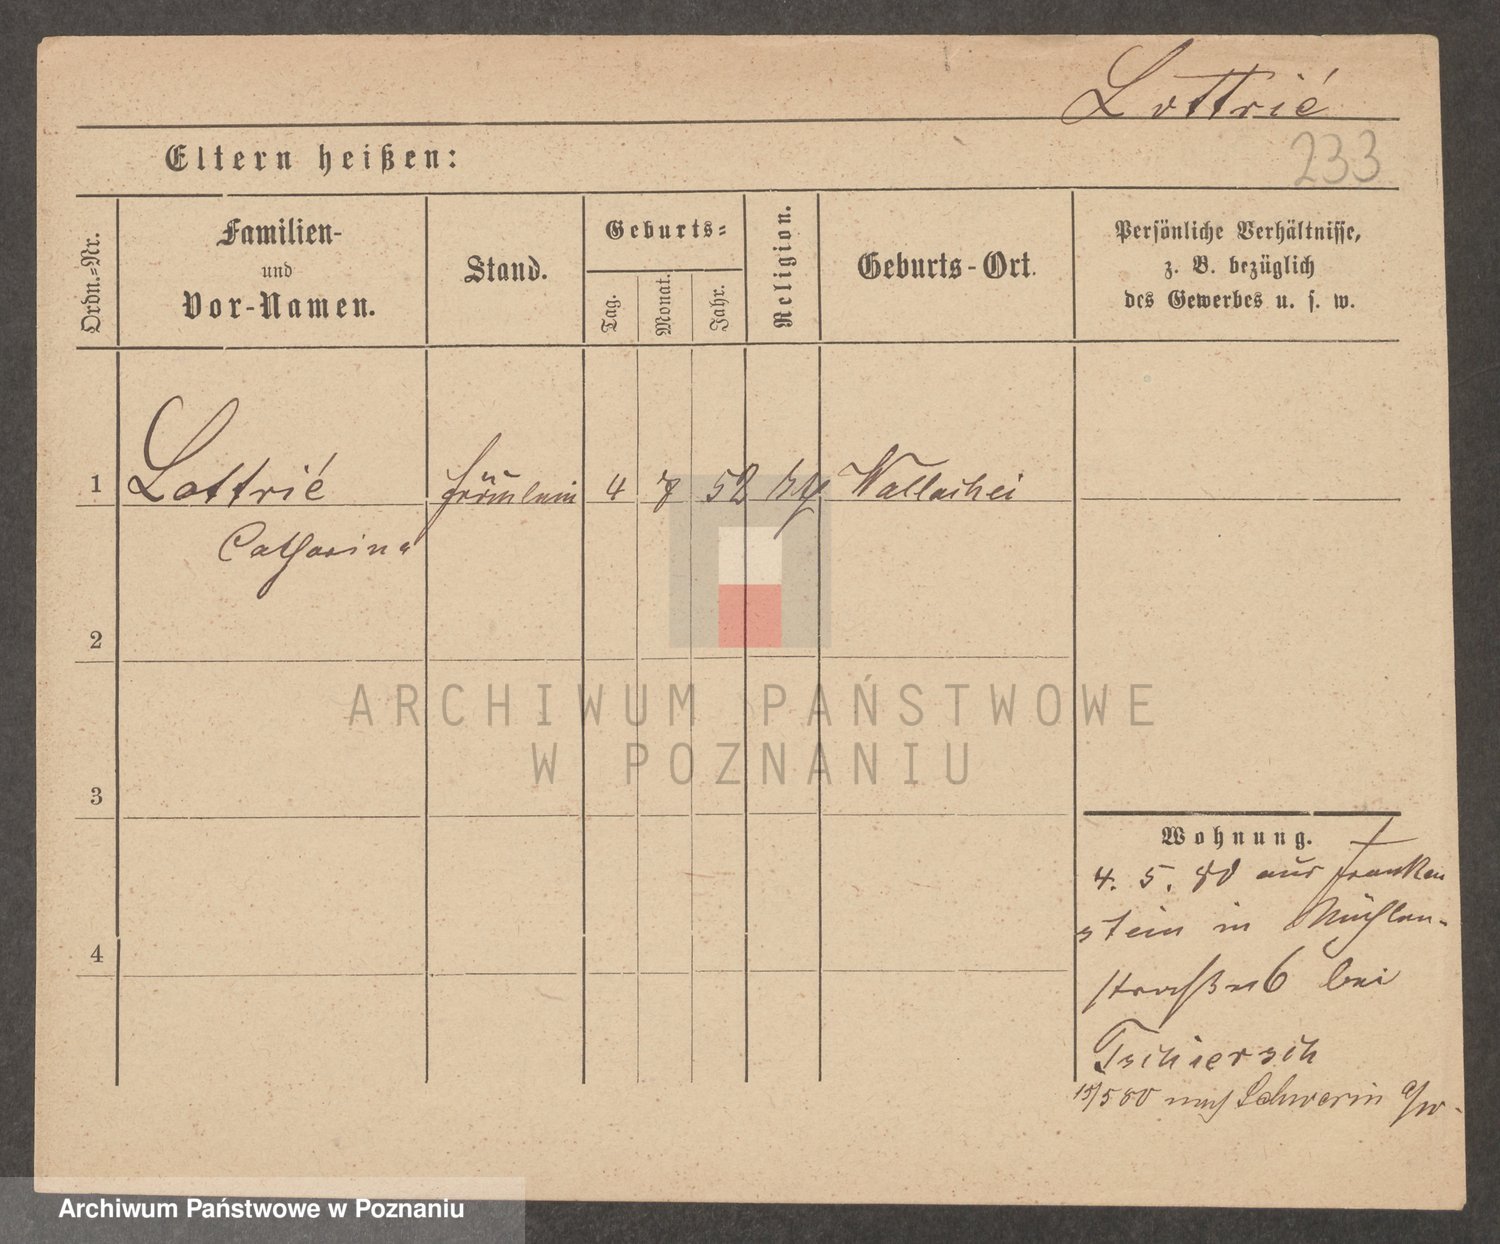 Lottrié
233
Eltern heißen:
Ordn.=Nr.
Familien-
und
Vor-Namen.
Stand.
Geburts=
Tag.
Monat.
Jahr.
Religion.
Geburts-Ort.
Persönliche Verhältnisse,
z. B. bezüglich
des Gewerbes u. s. w.
1 Lottrié Fräulein 4 7 52 Wallachei
Catharina
2
3
4
Wohnung.
4. 5. 80 aus Franken
stein in Mühlen-
straße 6 bei
Tschiersch
15/5 80 nach Schwerin a/w.
ARCHIWUM PAŃSTWOWE
W POZNANIU
Archiwum Państwowe w Poznaniu